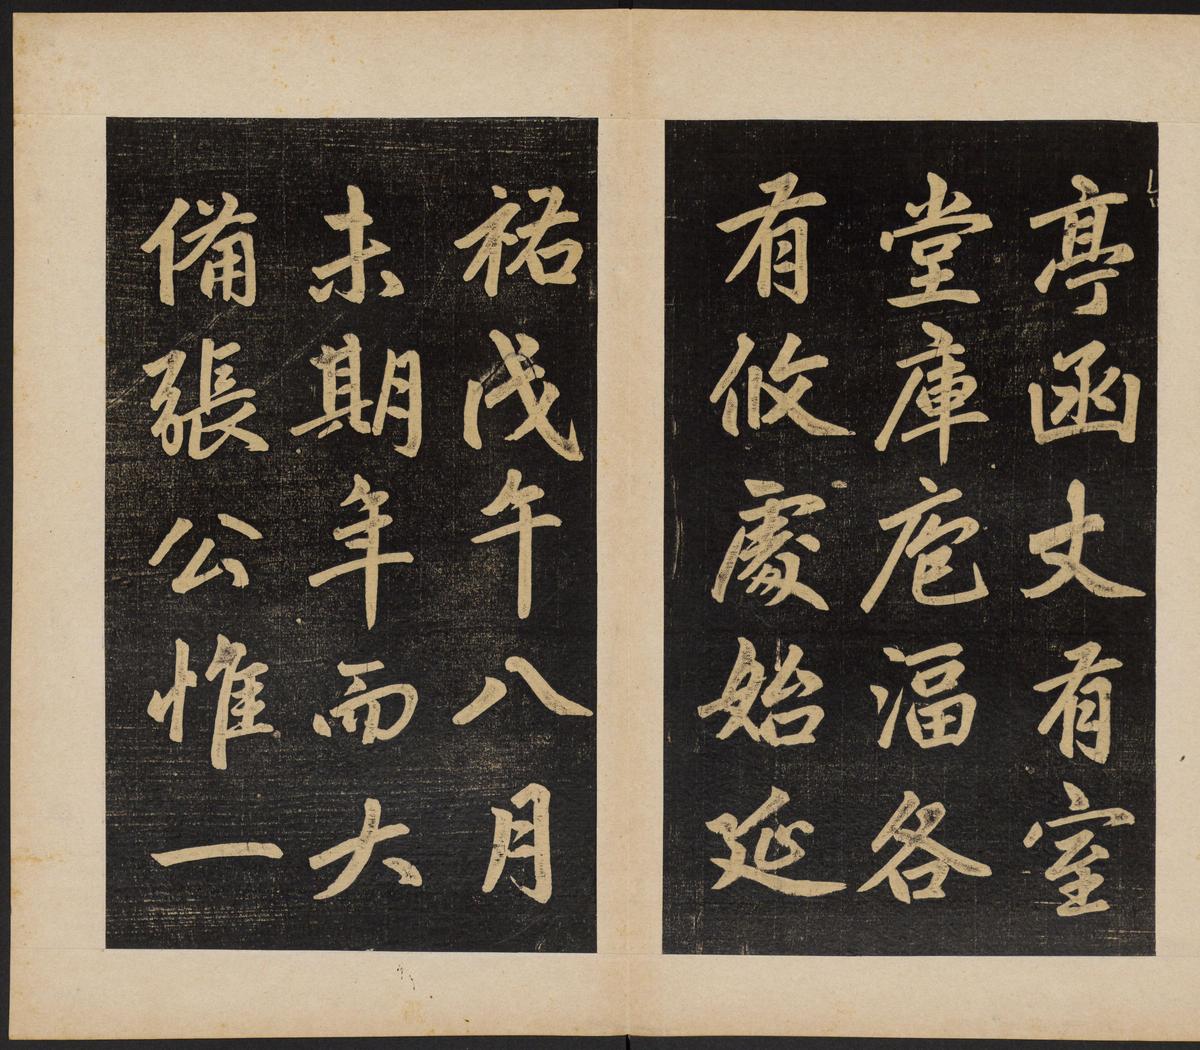 亭函丈有室
堂庫庖湢各
有攸處始延
祐戊午八月
未期年而大
備張公惟一